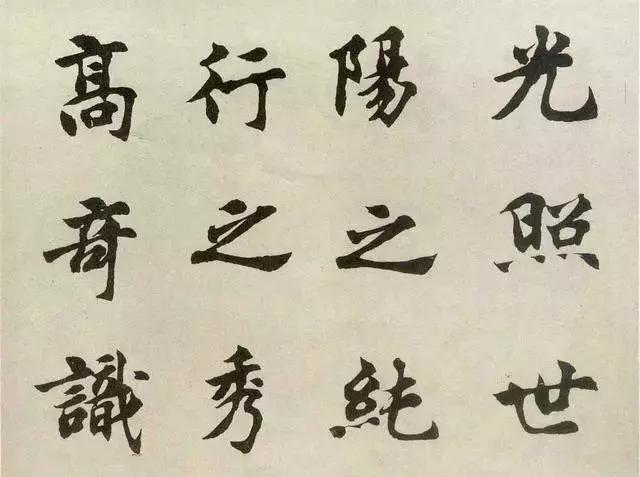 光照世
陽之純
行之秀
高奇識